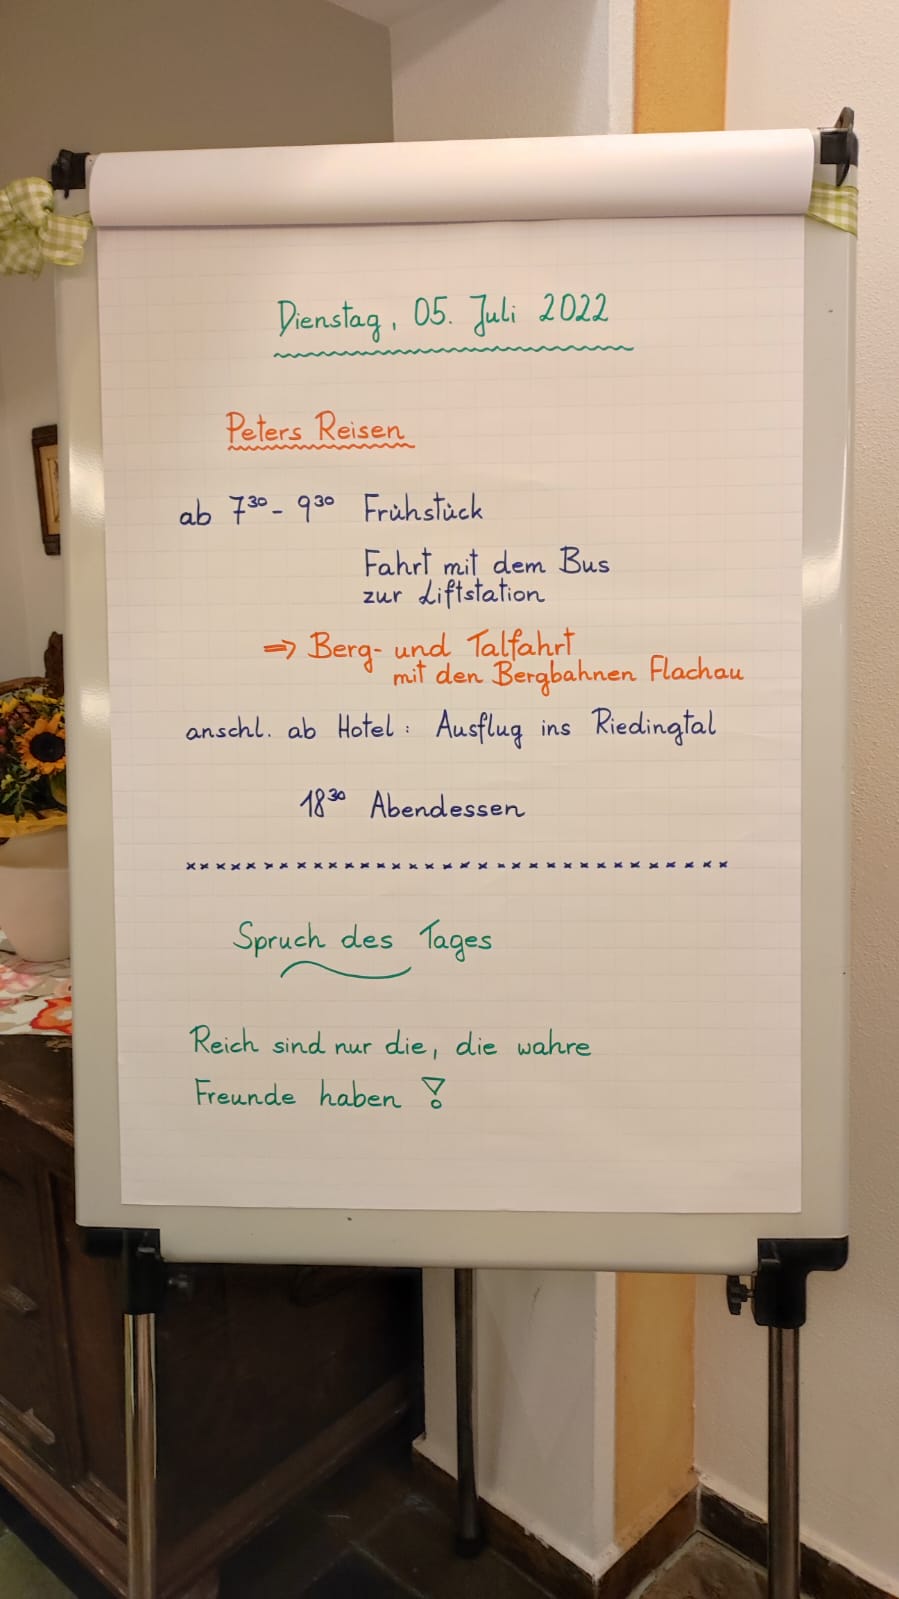 Dienstag, 05. Juli 2022
Peters Reisen
ab 7³⁰ - 9³⁰ Frühstück
Fahrt mit dem Bus
zur Liftstation
⇒ Berg- und Talfahrt
mit den Bergbahnen Flachau
anschl. ab Hotel: Ausflug ins Riedingtal
18³⁰ Abendessen
xxxxxxxxxxxxxxxxxxxxxxxxxxxxxxxxxx
Spruch des Tages
Reich sind nur die, die wahre
Freunde haben !